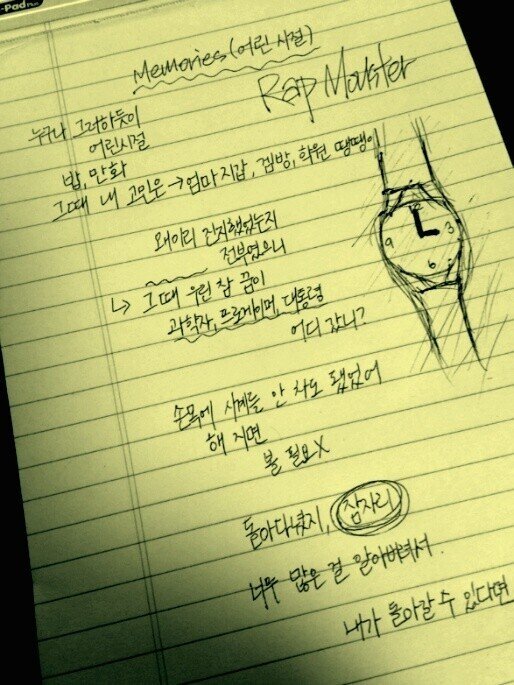 -Pad Plus
Memories (어린 시절)
Rap Monster
누구나 그러하듯이
어린시절
밥, 만화
그때 내 고민은 → 엄마지갑, 겜방, 학원 땡땡이
왜이리 진지했었는지
전부였으니
↳ 그때 우린 참 꿈이
과학자, 프로게이머, 대통령
어디 갔니?
9 3
6
손목에 시계를 안 차도 됐었어
해 지면
볼 필요X
돌아다녔지, 잠자리
너무 많은 걸 알아버려서.
내가 돌아갈 수 있다면